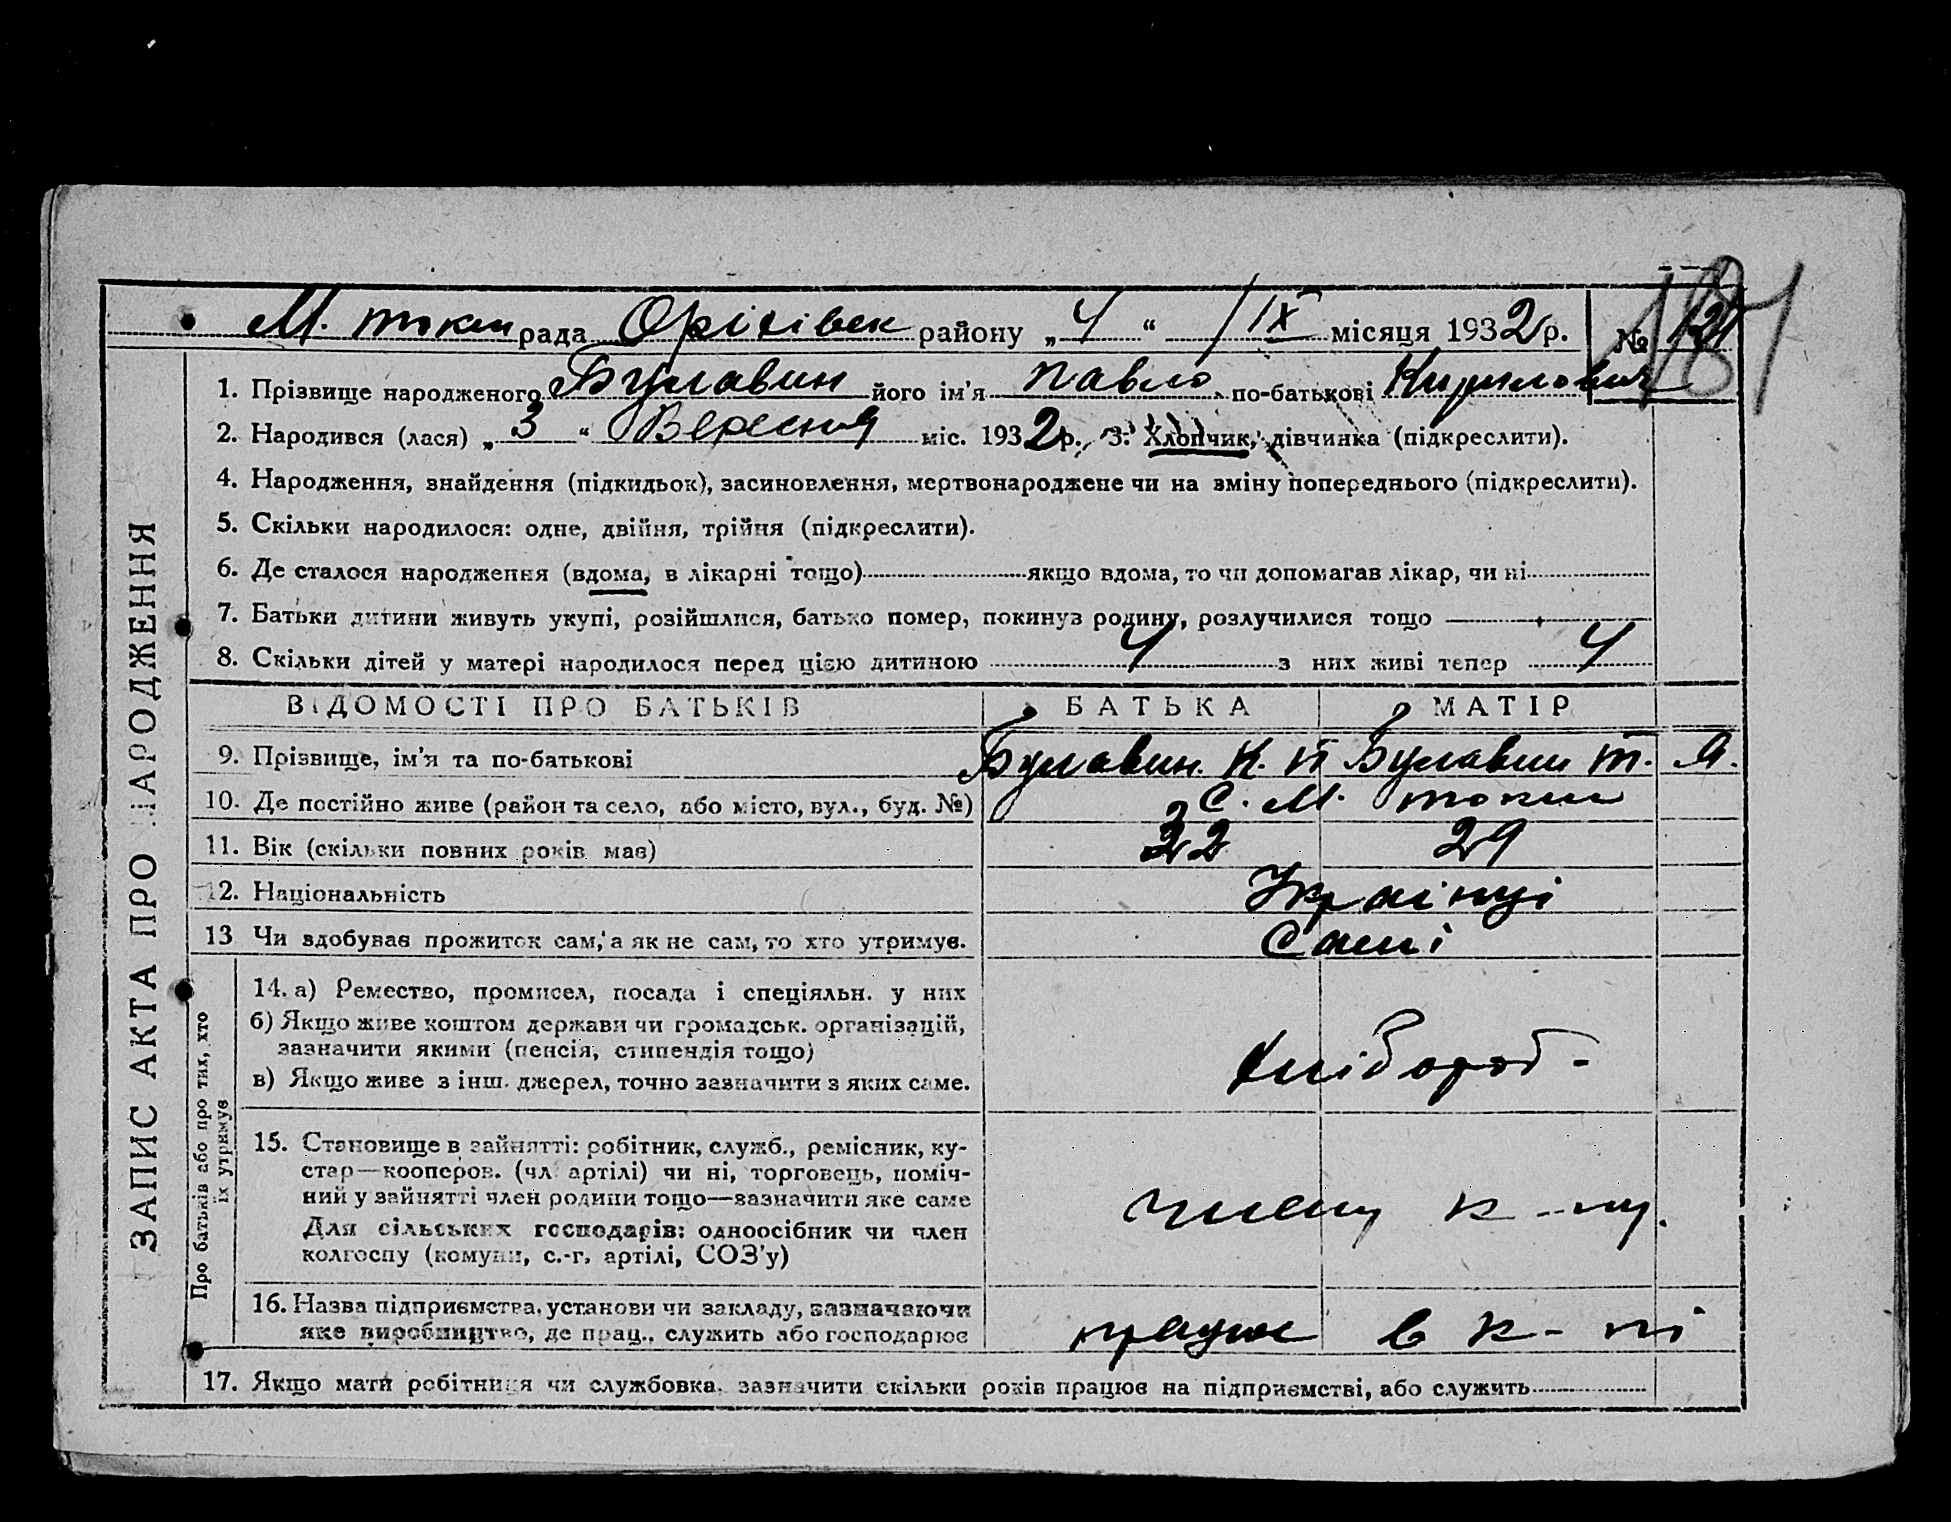 М. токм рада Оріхівск району „4“ /IX місяця 1932 р. №
1. Прізвище народженого Булавин його ім'я Павло по-батькові Кирилович
2. Народився (лася) „3“ Вересня міс. 1932 р. 3. Хлопчик, дівчинка (підкреслити).
4. Народження, знайдення (підкидьок), засиновлення, мертвонароджене чи на зміну попереднього (підкреслити).
5. Скільки народилося: одне, двійня, трійня (підкреслити).
6. Де сталося народження (вдома, в лікарні тощо) якщо вдома, то чи допомагав лікар, чи ні
7. Батьки дитини живуть укупі, розійшлися, батько помер, покинув родину, розлучилися тощо
8. Скільки дітей у матері народилося перед цією дитиною 4 з них живі тепер 4
ВІДОМОСТІ ПРО БАТЬКІВ БАТЬКА МАТІР
9. Прізвище, ім'я та по-батькові Булавин. К. П Булавин Т. Я.
10. Де постійно живе (район та село, або місто, вул., буд. №) С. М. токм
11. Вік (скільки повних років має) 32 29
12. Національність Українці
13 Чи здобував прожиток сам, а як не сам, то хто утримув. Самі
14. а) Ремество, промисел, посада і спеціяльн. у них
б) Якщо живе коштом держави чи громадськ. організацій,
зазначити якими (пенсія, стипендія тощо)
в) Якщо живе з інш. джерел, точно зазначити з яких саме.
хлібороб-
15. Становище в зайнятті: робітник, служб., ремісник, ку-
стар—кооперов. (чл. артілі) чи ні, торговець, поміч-
ний у зайнятті член родини тощо—зазначити яке саме
Для сільських господарів: одноосібник чи член
колгоспу (комуни, с.-г. артілі, СОЗ'у)
члени к-пу.
16. Назва підприємства, установи чи закладу, зазначаючи
яке виробництво, де прац., служить або господарює
працює в к-пі
17. Якщо мати робітниця чи службовка, зазначити скільки років працює на підприємстві, або служить
ЗАПИС АКТА ПРО НАРОДЖЕННЯ
Про батьків або про тих, хто
їх утримує